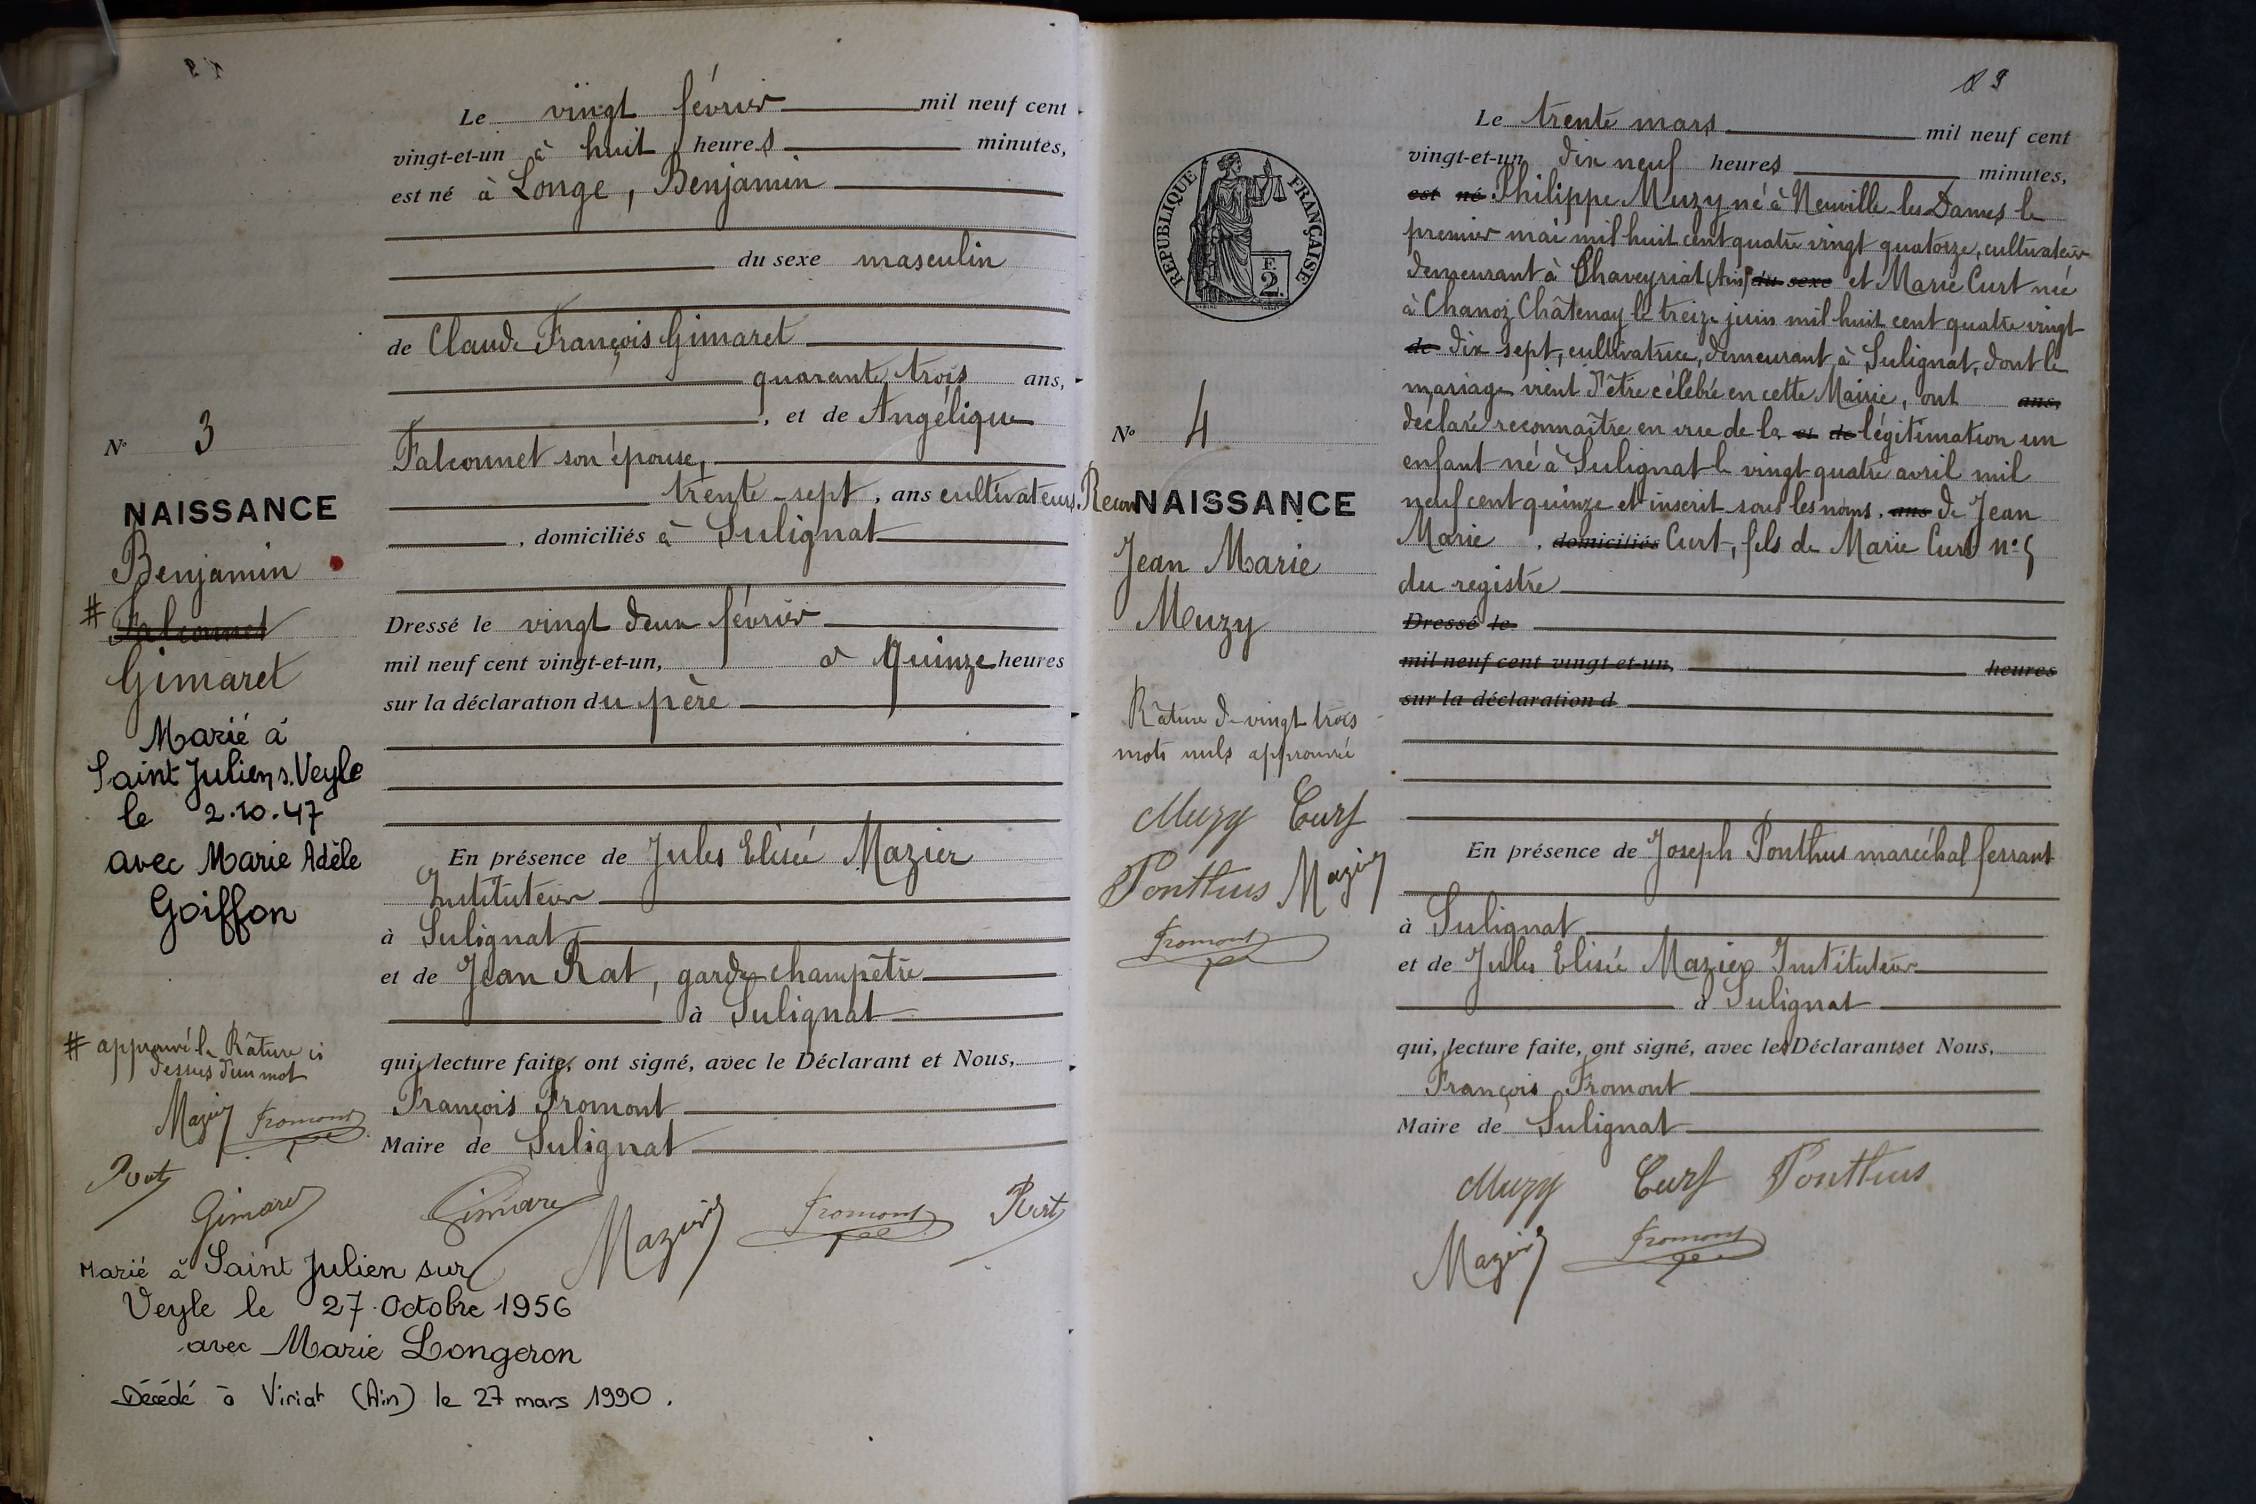 Le vingt février mil neuf cent
vingt-et-un à huit heures minutes,
est né à Longe, Benjamin
du sexe masculin
de Claude François Gimaret
quarante trois ans,
, et de Angélique
Falconnet son épouse,
trente-sept, ans cultivateurs
, domiciliés à Sulignat
Dressé le vingt deux février
mil neuf cent vingt-et-un, à Quinze heures
sur la déclaration du père
En présence de Jules Elisée Mazier
Instituteur
à Sulignat
et de Jean Rat, garde champêtre
à Sulignat
qui, lecture faite, ont signé, avec le Déclarant et Nous,
François Fromont
Maire de Sulignat
Gimaret Mazier Fromont Rat
N° 3
NAISSANCE
Benjamin
# Falconnet
Gimaret
Marié à
Saint Julien s. Veyle
le 2.10.47
avec Marie Adèle
Goiffon
# approuvé la Râture ci
dessus d'un mot
Mazier Fromont
Rat
Gimaret
Marié à Saint Julien sur
Veyle le 27 Octobre 1956
avec Marie Longeron
Décédé à Viriat (Ain) le 27 mars 1990.
N° 4
Recon NAISSANCE
Jean Marie
Muzy
Râture de vingt trois
mots nuls approuvée
Muzy Curt
Ponthus Mazier
Fromont
RÉPUBLIQUE FRANÇAISE
F
2.
Le trente mars mil neuf cent
vingt-et-un dix neuf heures minutes,
est né Philippe Muzy né à Neuville les Dames le
premier mai mil huit cent quatre vingt quatorze, cultivateur
demeurant à Chaveyriat (Ain) du sexe et Marie Curt née
à Chanoz Châtenay le treize juin mil huit cent quatre vingt
de dix sept, cultivatrice, demeurant à Sulignat, dont le
mariage vient d'être célébré en cette Mairie, ont ans,
déclaré reconnaître en vue de la et de légitimation un
enfant né à Sulignat le vingt quatre avril mil
neuf cent quinze et inscrit sous les noms, ans de Jean
Marie , domiciliés Curt, fils de Marie Curt n° 5
du registre
Dressé le
mil neuf cent vingt-et-un, heures
sur la déclaration d
En présence de Joseph Ponthus maréchal ferrant
à Sulignat
et de Jules Elisée Mazier Instituteur
à Sulignat
qui, lecture faite, ont signé, avec les Déclarants et Nous,
François Fromont
Maire de Sulignat
Muzy Curt Ponthus
Mazier Fromont